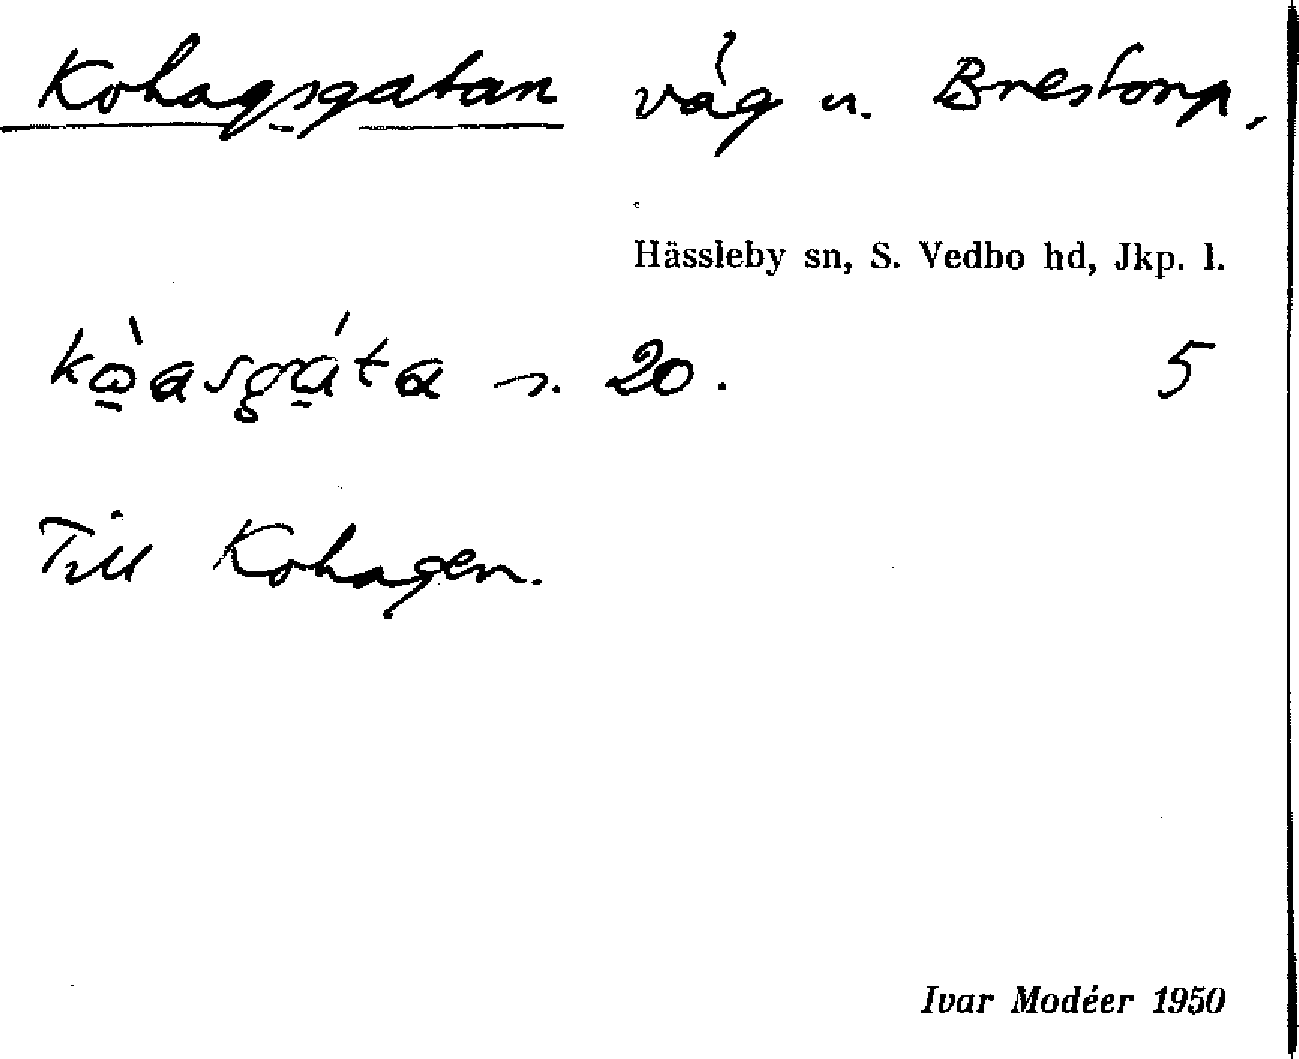 Kohagsgatan väg u. Brestorp,
Hässleby sn, S. Vedbo hd, Jkp. l.
kòasgáta s. 20. 5
Till Kohagen.
Ivar Modéer 1950